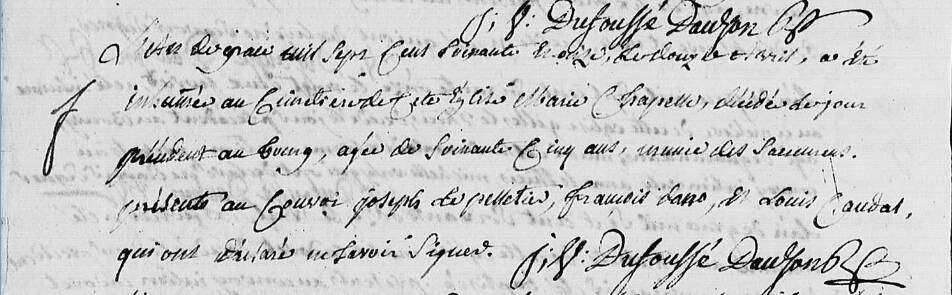 j: V: Dufoussé Dauzon
L'an de grace mil sept cent soixante et onze, le douze avril, a été
inhumée au Cimetière de cete Église Marie Chapelle, décédée le jour
précédent au bourg, agée de soixante cinq ans, munie des sacremens.
présents au Convoi joseph le pelletier, françois dano, et Louis Caudal,
qui ont déclaré ne savoir signer.
j: V: Dufoussé Dauzon